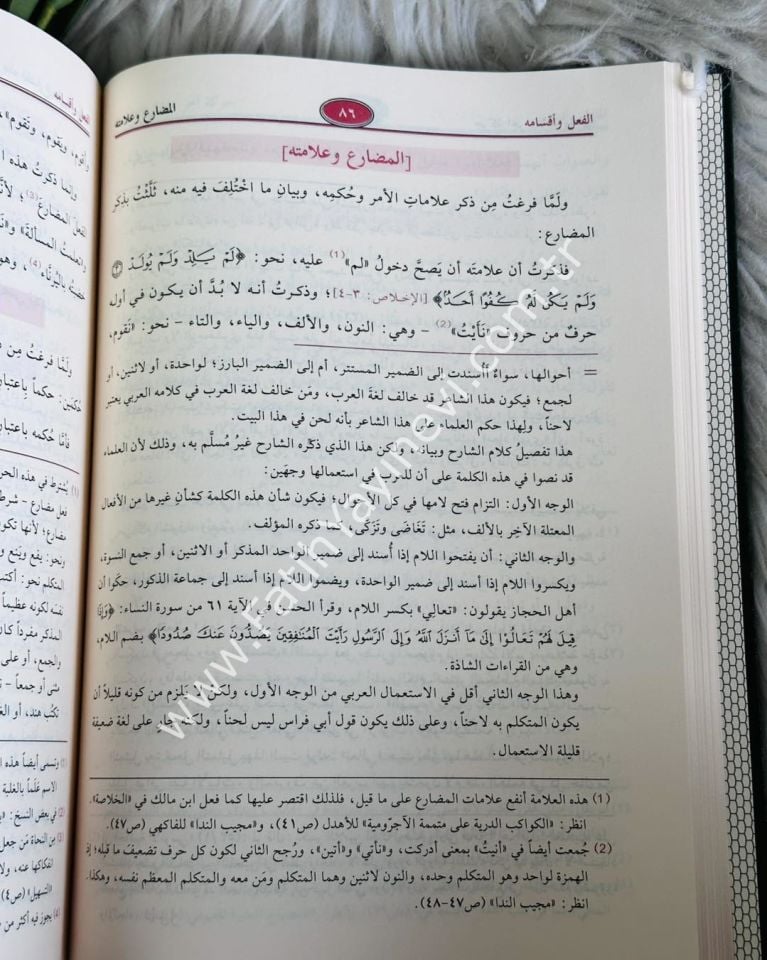 الفعل وأقسامه
٨٦
المضارع وعلامته
[المضارع وعلامته]
ولَمَّا فرغتُ مِن ذكر علاماتِ الأمر وحُكمِه، وبيانِ ما اخْتُلِفَ فيه منه، ثَلَّثْتُ بذِكر
المضارع:
فذكرتُ أن علامتَه أن يَصحَّ دخولُ «لم»(1) عليه، نحو: ﴿لَمْ يَلِدْ وَلَمْ يُولَدْ ٣
وَلَمْ يَكُن لَّهُ كُفُوًا أَحَدٌ﴾ [الإخلاص: ٣-٤]؛ وذكرتُ أنه لا بُدَّ أن يكون في أوله
حرفٌ من حروف «نَأَيْتُ»(2) – وهي: النون، والألف، والياء، والتاء – نحو: «نَقوم،
= أحوالها، سواءٌ أأسندت إلى الضمير المستتر، أم إلى الضمير البارز؛ لواحدة، أو لاثنين، أو
لجمع؛ فيكون هذا الشاعر قد خالف لغةَ العرب، ومَن خالف لغة العرب في كلامه العربي يعتبر
لاحناً، ولهذا حكم العلماء على هذا الشاعر بأنه لحن في هذا البيت.
هذا تفصيلُ كلام الشارح وبيانه، ولكن هذا الذي ذكره الشارح غيرُ مُسلَّم به، وذلك لأن العلماء
قد نصوا في هذه الكلمة على أن للعرب في استعمالها وجهَين:
الوجه الأول: التزام فتح لامها في كل الأحوال؛ فيكون شأن هذه الكلمة كشأن غيرها من الأفعال
المعتلة الآخِر بالألف، مثل: تَغَاضَى وتَزَكَّى، كما ذكره المؤلف.
والوجه الثاني: أن يفتحوا اللام إذا أُسند إلى ضمير الواحد المذكر أو الاثنين، أو جمع النسوة،
ويكسروا اللام إذا أسند إلى ضمير الواحدة، ويضموا اللام إذا أسند إلى جماعة الذكور، حكَوا أن
أهل الحجاز يقولون: «تعالِي» بكسر اللام، وقرأ الحسن في الآية ٦١ من سورة النساء: ﴿وَإِذَا
قِيلَ لَهُمْ تَعَالُوا إِلَىٰ مَا أَنزَلَ اللَّهُ وَإِلَى الرَّسُولِ رَأَيْتَ الْمُنَافِقِينَ يَصُدُّونَ عَنكَ صُدُودًا﴾ بضم اللام،
وهي من القراءات الشاذة.
وهذا الوجه الثاني أقل في الاستعمال العربي من الوجه الأول، ولكن لا يَلزم من كونه قليلاً أن
يكون المتكلم به لاحناً، وعلى ذلك يكون قول أبي فراس ليس لحناً، ولكنه جارٍ على لغة ضعيفة
قليلة الاستعمال.
(1) هذه العلامة أنفع علامات المضارع على ما قيل، فلذلك اقتصر عليها كما فعل ابن مالك في «الخلاصة».
انظر: «الكواكب الدرية على متممة الآجرّومية» للأهدل (ص٤١)، و«مجيب الندا» للفاكهي (ص٤٧).
(2) جُمعت أيضاً في «أنيتُ» بمعنى أدركت، و«نأتي» و«أتين»، ورُجح الثاني لكون كل حرف تضعيفَ ما قبله؛ إذ
الهمزة لواحد وهو المتكلم وحده، والنون لاثنين وهما المتكلم ومَن معه والمتكلم المعظم نفسه، وهكذا.
انظر: «مجيب الندا» (ص٤٧-٤٨).
الفعل وأقسامه
وأقوم، ويَقوم، وتَقوم»،
وإنما ذكرتُ هذه ا
الفعل المضارع(3)؛ لأنَّ
والعلمتُ المسألةَ» و«نَـ
خضبتُه باليُرنَّاء(4)، وهو
ولَمَّا فرغتُ مِن ذ
حُكمَين: حكماً باعتبار
فأمَّا حُكمه باعتبار
www.FatihYayinevi.com.tr